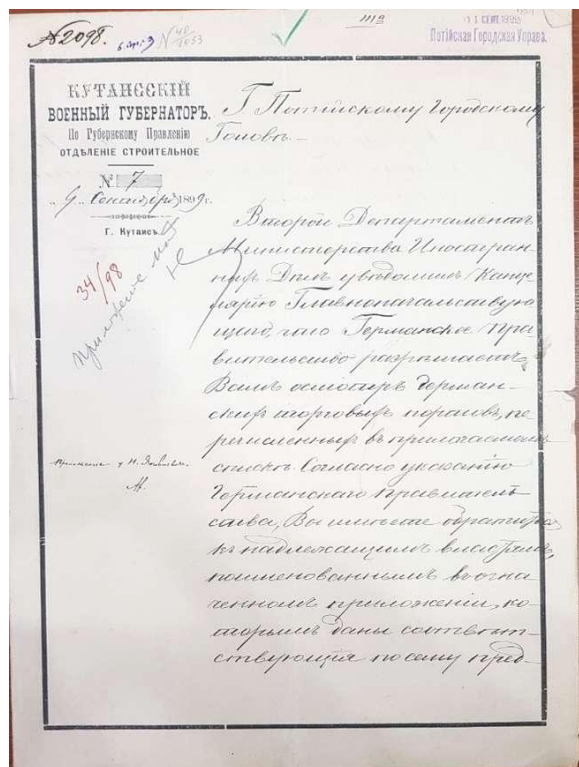 №2098.
1899
Потійская Городская Управа.
КУТАИССКІЙ
ВОЕННЫЙ ГУБЕРНАТОРЪ.
По Губернскому Правленію
ОТДѢЛЕНІЕ СТРОИТЕЛЬНОЕ
№ 7
„9„ Сентября 1899 г.
Г. Кутаисъ.
34/98
Приложеніе
Г. Потійскому Городскому
Головѣ.
Второй Департаментъ
Министерства Иностран-
ныхъ Дѣлъ увѣдомилъ Канце-
лярію Главноначальствую-
щаго, что Германское Пра-
вительство разрѣшаетъ
Вамъ осмотръ Герман-
скихъ торговыхъ портовъ, пе-
речисленныхъ въ прилагаемомъ
спискѣ. Согласно указанію
Германскаго Правитель-
ства, Вы имѣете обратиться
къ надлежащимъ властямъ,
поименованнымъ въ озна-
ченномъ приложеніи, ко-
торымъ даны соотвѣт-
ствующія по сему пред-